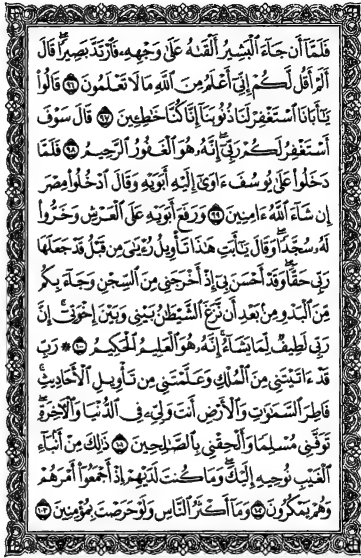 فَلَمَّآ أَن جَآءَ ٱلْبَشِيرُ أَلْقَىٰهُ عَلَىٰ وَجْهِهِۦ فَٱرْتَدَّ بَصِيرًۭا ۖ قَالَ
أَلَمْ أَقُل لَّكُمْ إِنِّىٓ أَعْلَمُ مِنَ ٱللَّهِ مَا لَا تَعْلَمُونَ ٩٦ قَالُوا۟
يَـٰٓأَبَانَا ٱسْتَغْفِرْ لَنَا ذُنُوبَنَآ إِنَّا كُنَّا خَـٰطِـِٔينَ ٩٧ قَالَ سَوْفَ
أَسْتَغْفِرُ لَكُمْ رَبِّىٓ ۖ إِنَّهُۥ هُوَ ٱلْغَفُورُ ٱلرَّحِيمُ ٩٨ فَلَمَّا
دَخَلُوا۟ عَلَىٰ يُوسُفَ ءَاوَىٰٓ إِلَيْهِ أَبَوَيْهِ وَقَالَ ٱدْخُلُوا۟ مِصْرَ
إِن شَآءَ ٱللَّهُ ءَامِنِينَ ٩٩ وَرَفَعَ أَبَوَيْهِ عَلَى ٱلْعَرْشِ وَخَرُّوا۟
لَهُۥ سُجَّدًۭا ۖ وَقَالَ يَـٰٓأَبَتِ هَـٰذَا تَأْوِيلُ رُءْيَـٰىَ مِن قَبْلُ قَدْ جَعَلَهَا
رَبِّى حَقًّۭا ۖ وَقَدْ أَحْسَنَ بِىٓ إِذْ أَخْرَجَنِى مِنَ ٱلسِّجْنِ وَجَآءَ بِكُم
مِّنَ ٱلْبَدْوِ مِنۢ بَعْدِ أَن نَّزَغَ ٱلشَّيْطَـٰنُ بَيْنِى وَبَيْنَ إِخْوَتِىٓ ۚ إِنَّ
رَبِّى لَطِيفٌۭ لِّمَا يَشَآءُ ۚ إِنَّهُۥ هُوَ ٱلْعَلِيمُ ٱلْحَكِيمُ ١٠٠ ۞ رَبِّ
قَدْ ءَاتَيْتَنِى مِنَ ٱلْمُلْكِ وَعَلَّمْتَنِى مِن تَأْوِيلِ ٱلْأَحَادِيثِ ۚ
فَاطِرَ ٱلسَّمَـٰوَٰتِ وَٱلْأَرْضِ أَنتَ وَلِىِّۦ فِى ٱلدُّنْيَا وَٱلْـَٔاخِرَةِ ۖ
تَوَفَّنِى مُسْلِمًۭا وَأَلْحِقْنِى بِٱلصَّـٰلِحِينَ ١٠١ ذَٰلِكَ مِنْ أَنۢبَآءِ
ٱلْغَيْبِ نُوحِيهِ إِلَيْكَ ۖ وَمَا كُنتَ لَدَيْهِمْ إِذْ أَجْمَعُوٓا۟ أَمْرَهُمْ
وَهُمْ يَمْكُرُونَ ١٠٢ وَمَآ أَكْثَرُ ٱلنَّاسِ وَلَوْ حَرَصْتَ بِمُؤْمِنِينَ ١٠٣